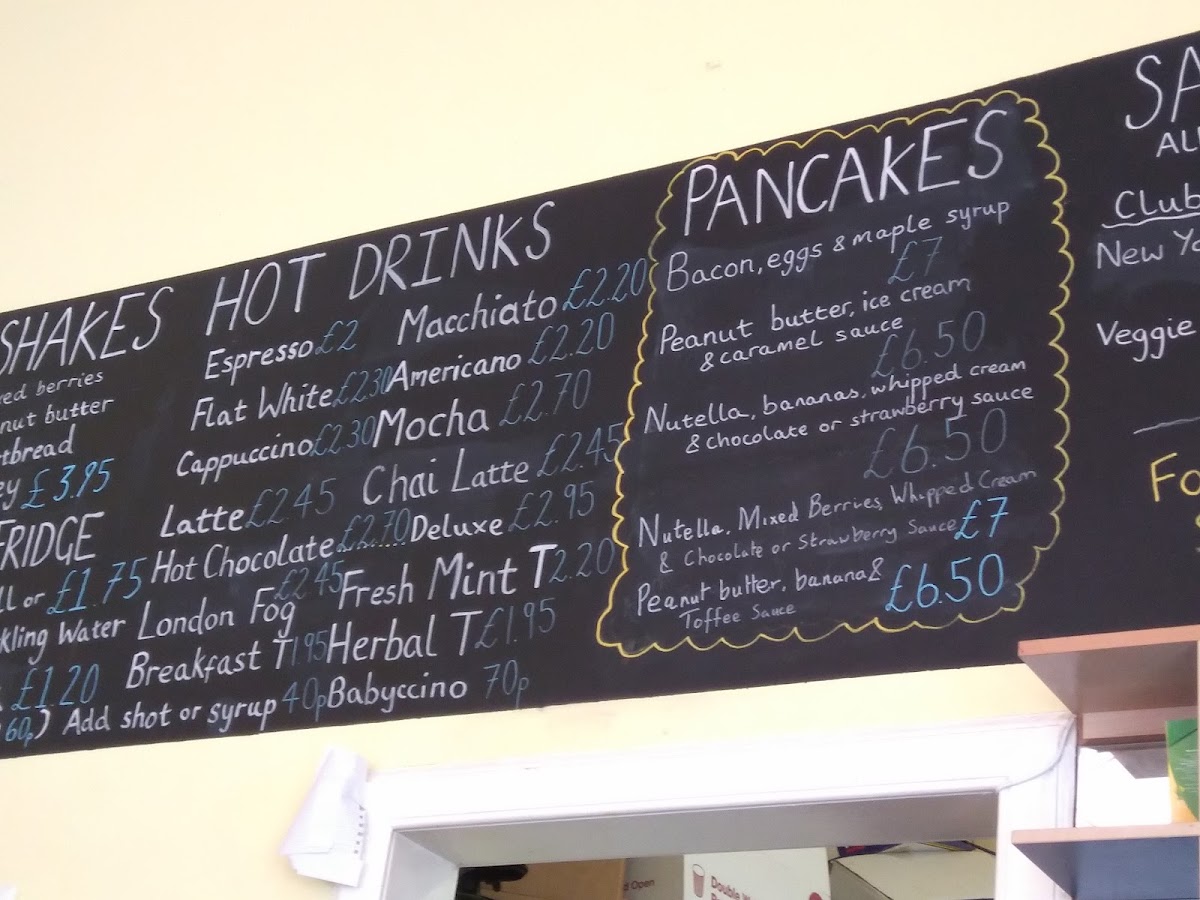 SHAKES
berries
butter
£3.95
FRIDGE
or £1.75
Water
£1.20
60p)
HOT DRINKS
Espresso £2
Flat White £2.30
Cappuccino £2.30
Latte £2.45
Hot Chocolate £2.70
London Fog £2.45
Breakfast T 1.95
Add shot or syrup 40p
Macchiato £2.20
Americano £2.20
Mocha £2.70
Chai Latte £2.45
Deluxe £2.95
Fresh Mint T 2.20
Herbal T £1.95
Babyccino 70p
PANCAKES
Bacon, eggs & maple syrup
£7
Peanut butter, ice cream
& caramel sauce
£6.50
Nutella, bananas, whipped cream
& chocolate or strawberry sauce
£6.50
Nutella, Mixed Berries, Whipped Cream
& Chocolate or Strawberry Sauce £7
Peanut butter, banana &
Toffee Sauce £6.50
SA
Club
New
Veggie
Open
Double